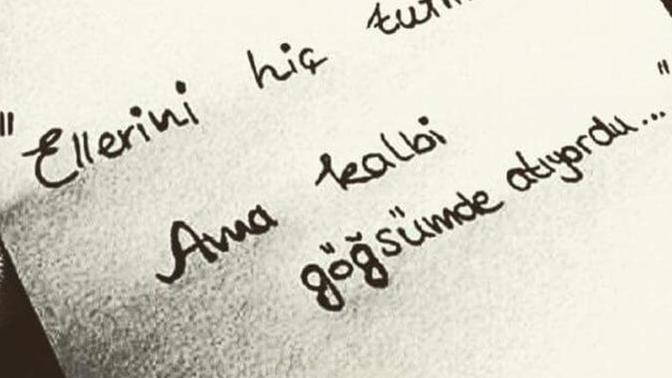 "Ellerini hiç
Ama kalbi
göğsümde atıyordu..."